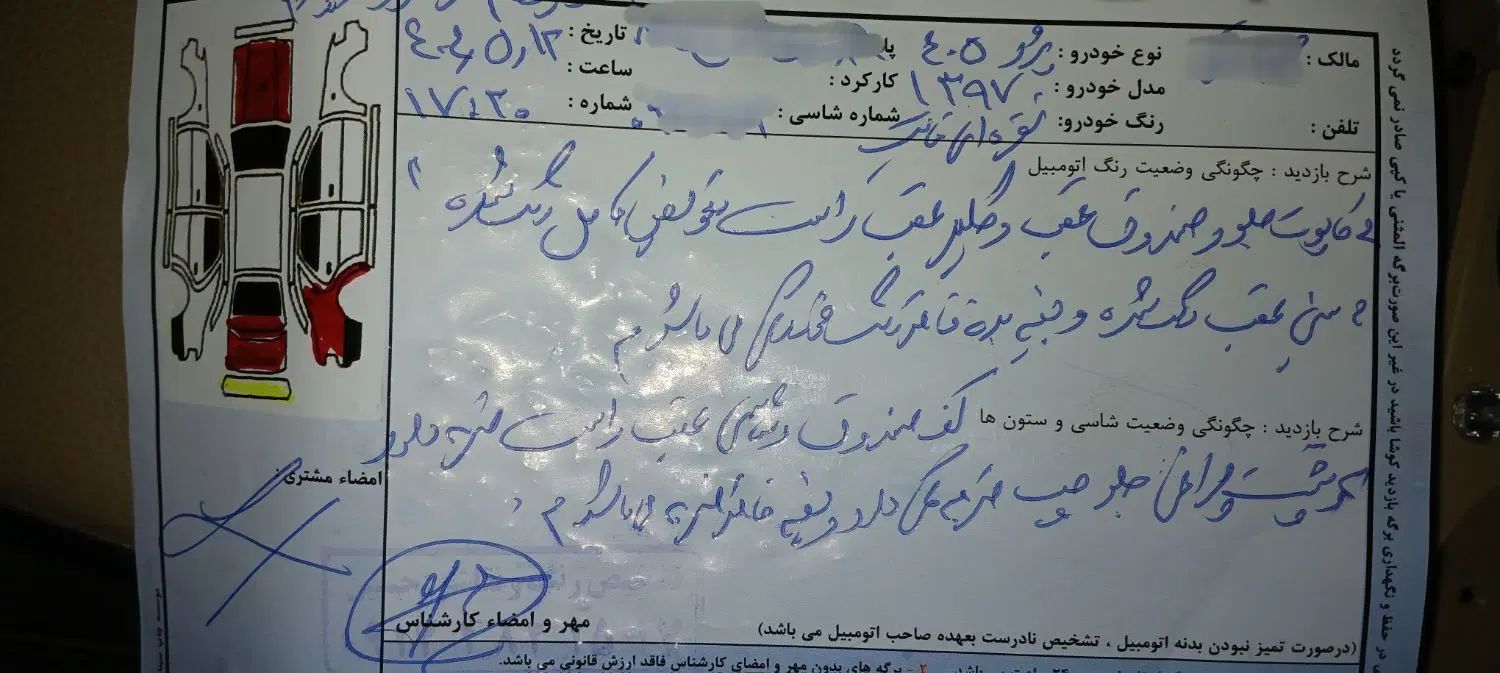 مالک : نوع خودرو : پژو ۴۰۵ تاریخ : ۱۲ر۵ر
مدل خودرو : ۱۳۹۷ کارکرد : ساعت :
تلفن : رنگ خودرو: نقره ای شماره شاسی : شماره : ۱۷:۳۰
شرح بازدید : چگونگی وضعیت رنگ اتومبیل
کاپوت جلو و صندوق عقب و گلگیر عقب راست تعویض کامل رنگ شده
سینی عقب رنگ شده و بقیه بدنه فاقد رنگ خوردگی می باشد
شرح بازدید : چگونگی وضعیت شاسی و ستون ها کف صندوق و شاسی عقب راست ضربه دارد
پشت چراغ جلو چپ ضربه دارد و بقیه فاقد ضربه می باشد
امضاء مشتری:
مهر و امضاء کارشناس
(درصورت تمیز نبودن بدنه اتومبیل ، تشخیص نادرست بعهده صاحب اتومبیل می باشد)
۲ - برگه های بدون مهر و امضای کارشناس فاقد ارزش قانونی می باشد.
در حفظ و نگهداری برگه بازدید کوشا باشید در غیر این صورت برگه المثنی یا کپی صادر نمی گردد